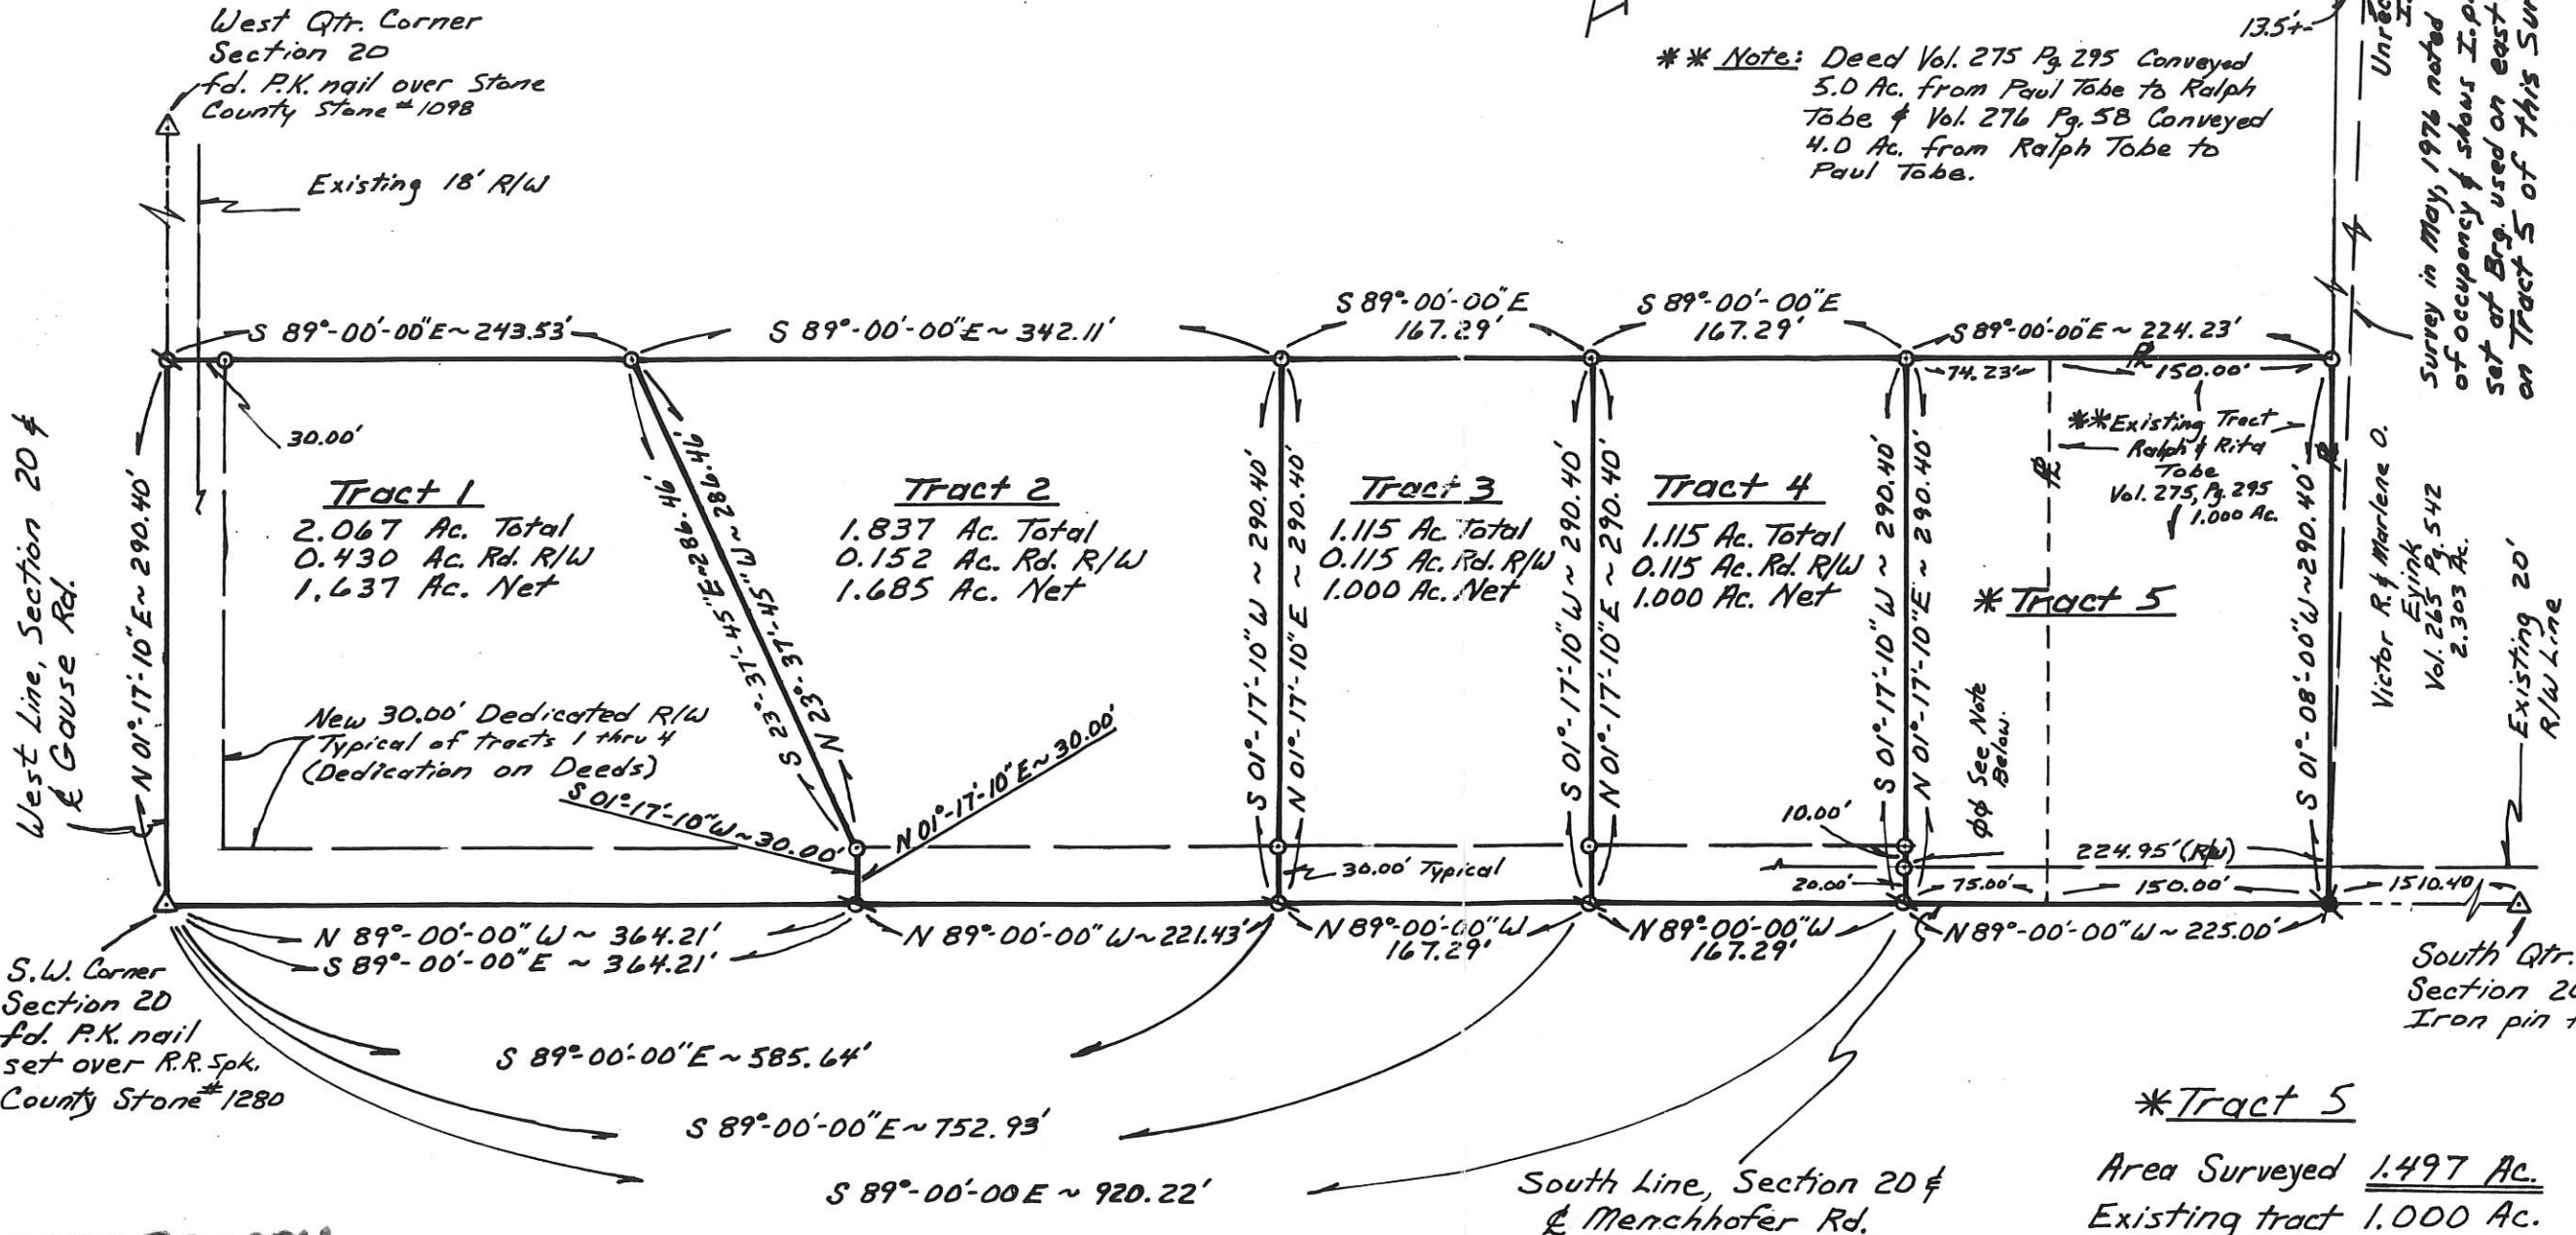 West Qtr. Corner
Section 20
fd. P.K. nail over Stone
County Stone #1098
Existing 18' R/W
** Note: Deed Vol. 275 Pg. 295 Conveyed
5.0 Ac. from Paul Tobe to Ralph
Tobe & Vol. 276 Pg. 58 Conveyed
4.0 Ac. from Ralph Tobe to
Paul Tobe.
13.5+-
Survey in May, 1976 noted
of occupancy & shows I.p.
set at Brg. used on east
on Tract 5 of this Sur
S 89°-00'-00"E ~ 243.53'
S 89°-00'-00"E ~ 342.11'
S 89°-00'-00"E
167.29'
S 89°-00'-00"E
167.29'
S 89°-00'-00"E ~ 224.23'
74.23'
150.00'
30.00'
West Line, Section 20 &
℄ Gause Rd.
N 01°-17'-10"E ~ 290.40'
Tract 1
2.067 Ac. Total
0.430 Ac. Rd. R/W
1.637 Ac. Net
S 23°-37'-45"E ~ 286.46'
N 23°-37'-45"W ~ 286.46'
Tract 2
1.837 Ac. Total
0.152 Ac. Rd. R/W
1.685 Ac. Net
S 01°-17'-10"W ~ 290.40'
N 01°-17'-10"E ~ 290.40'
Tract 3
1.115 Ac. Total
0.115 Ac. Rd. R/W
1.000 Ac. Net
S 01°-17'-10"W ~ 290.40'
N 01°-17'-10"E ~ 290.40'
Tract 4
1.115 Ac. Total
0.115 Ac. Rd. R/W
1.000 Ac. Net
S 01°-17'-10"W ~ 290.40'
N 01°-17'-10"E ~ 290.40'
**Existing Tract
Ralph & Rita
Tobe
Vol. 275, Pg. 295
1.000 Ac.
* Tract 5
ϕϕ See Note
Below.
S 01°-08'-00"W ~ 290.40'
Victor R. & Marlene O.
Eyink
Vol. 265 Pg. 542
2.303 Ac.
Existing 20'
R/W Line
New 30.00' Dedicated R/W
Typical of tracts 1 thru 4
(Dedication on Deeds)
S 01°-17'-10"W ~ 30.00'
N 01°-17'-10"E ~ 30.00'
30.00' Typical
10.00'
20.00'
224.95' (R/W)
75.00'
150.00'
1510.40
N 89°-00'-00"W ~ 364.21'
S 89°-00'-00"E ~ 364.21'
N 89°-00'-00"W ~ 221.43'
N 89°-00'-00"W
167.29'
N 89°-00'-00"W
167.29'
N 89°-00'-00"W ~ 225.00'
S.W. Corner
Section 20
fd. P.K. nail
set over R.R. Spk.
County Stone #1280
South Qtr.
Section 20
Iron pin
S 89°-00'-00"E ~ 585.64'
S 89°-00'-00"E ~ 752.93'
S 89°-00'-00 E ~ 920.22'
South Line, Section 20 &
℄ Menchhofer Rd.
*Tract 5
Area Surveyed 1.497 Ac.
Existing tract 1.000 Ac.